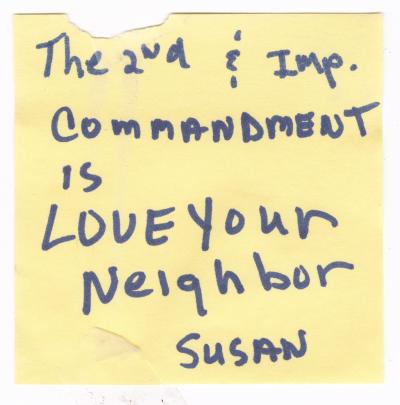 The 2nd & Imp.
COMMANDMENT
is
LOVE Your
Neighbor
SUSAN